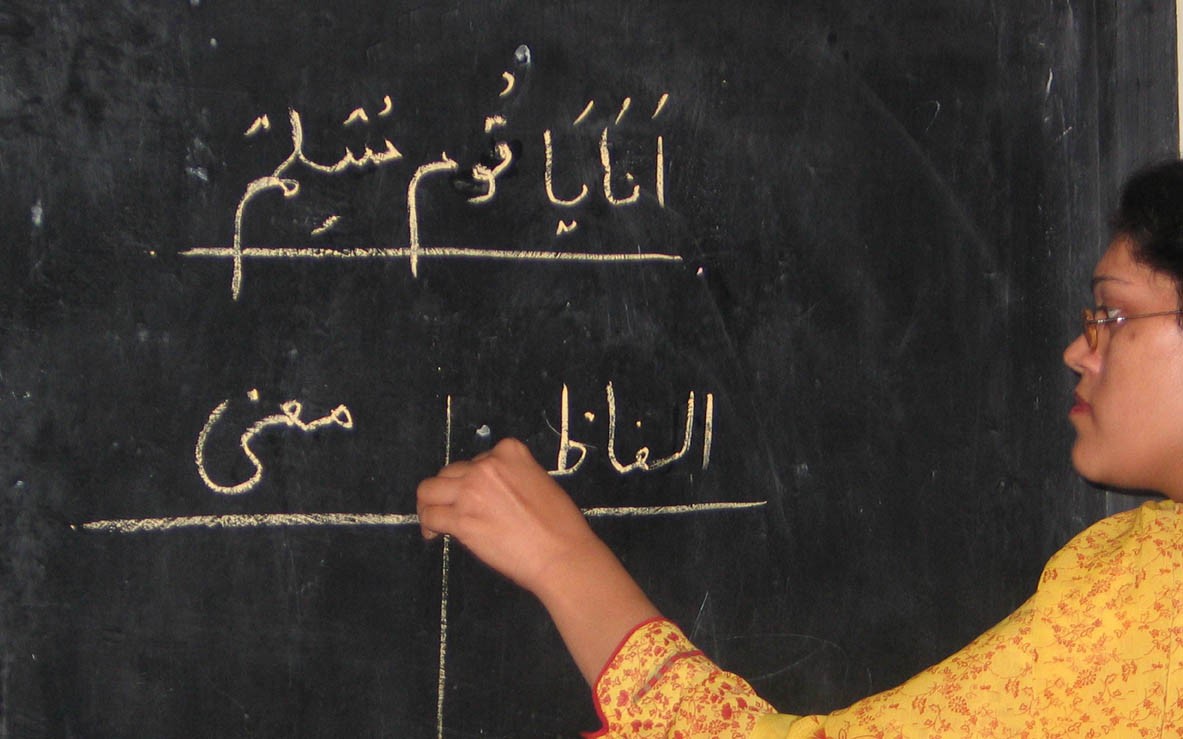 اَنَا یَا قُوم مُسْلِمْ
الفاظ معنی